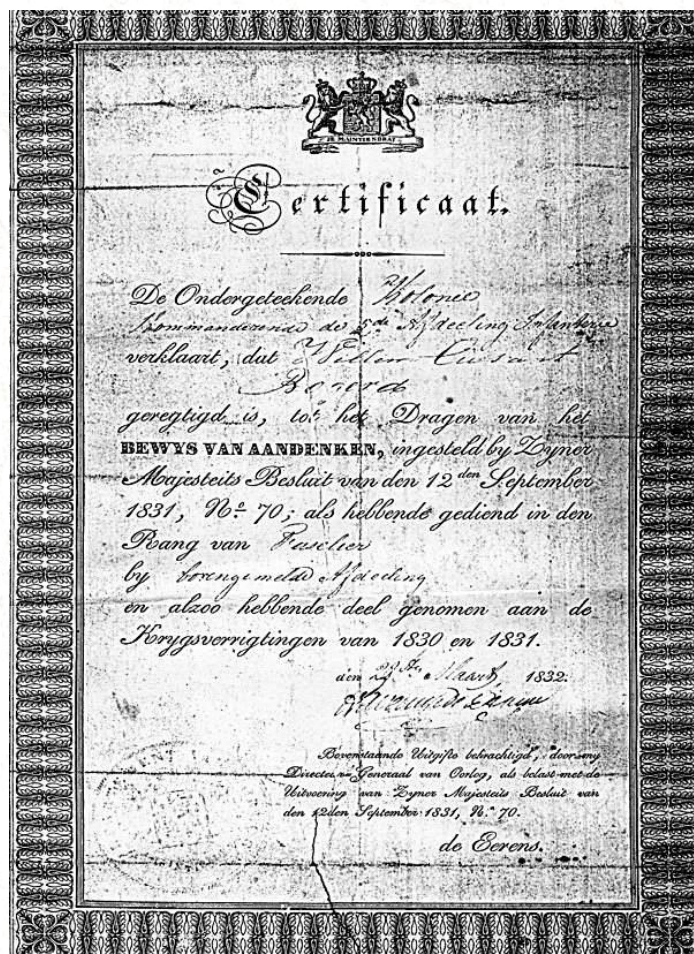 JE MAINTIENDRAI
Certificaat.
De Ondergeteekende Kolonel
Kommanderende de 5de Afdeeling Infanterie
verklaart, dat Willem
geregtigd is, tot het Dragen van het
BEWYS VAN AANDENKEN, ingesteld by Zyner
Majesteits Besluit van den 12den September
1831, No. 70; als hebbende gediend in den
Rang van Fuselier
by bovengemelde Afdeeling
en alzoo hebbende deel genomen aan de
Krygsverrigtingen van 1830 en 1831.
den Maart 1832.
Bovenstaande Uitgifte bekrachtigd, door my
Directeur Generaal van Oorlog, als belast met de
Uitvoering van Zyner Majesteits Besluit van
den 12den September 1831, No. 70.
de Eerens.